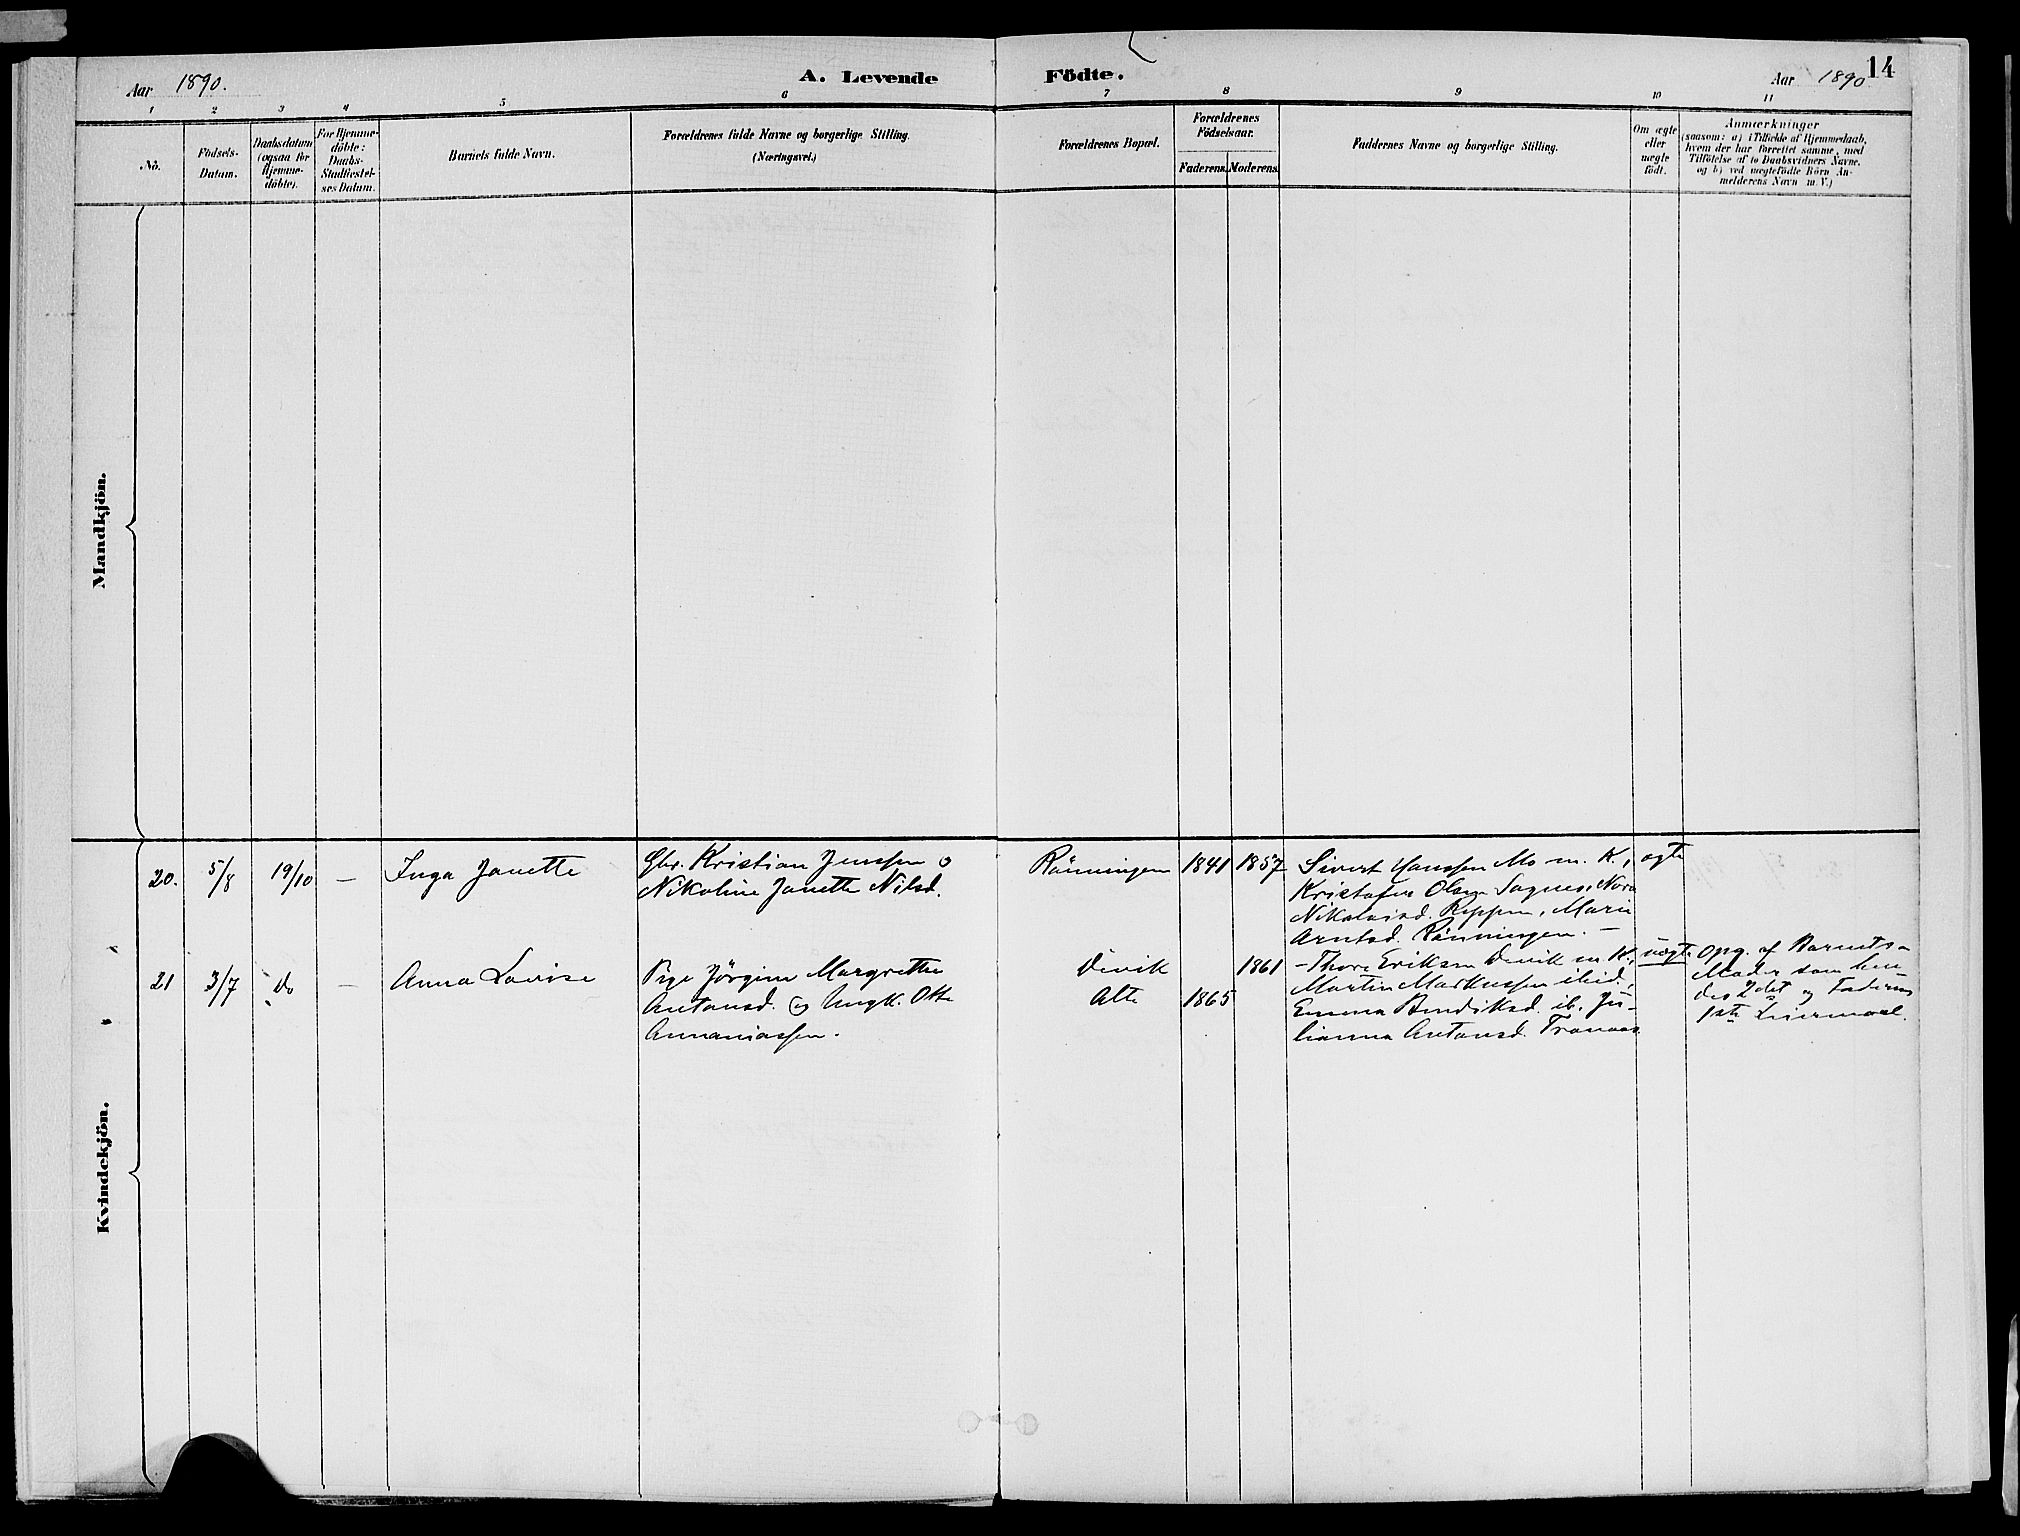 Aar 1890.
A. Levende Födte.
Aar 1890
14
1 2 3 4 5 6 7 8 9 10 11
No.
Födsels-
Datum.
Daabsdatum
(ogsaa for
Hjemme-
döbte).
For Hjemme-
döbte:
Daabs-
Stadfæstel-
ses Datum.
Barnets fulde Navn.
Forældrenes fulde Navne og borgerlige Stilling.
(Næringsvei.)
Forældrenes Bopæl.
Forældrenes
Födselsaar.
Faderens. Moderens.
Faddernes Navne og borgerlige Stilling.
Om ægte
eller
uægte
födt.
Anmærkninger
(saasom: a) i Tilfælde af Hjemmedaab,
hvem der har forrettet samme, med
Tilföielse af to Daabsvidners Navne,
og b) ved uægtefödte Börn An-
melderens Navn m. V.)
Mandkjön.
Kvindekjön.
20.
5/8
19/10
—
Inga Janette
Gbr. Kristian Jenssen o
Nikoline Janette Nilsd.
Rönningen
1841
1857
Sivert Hanssen Mo m. K.,
Kristofer Olsen Sagnes, Nora
Nikolaisd. Reppen, Marie
Arntsd. Rönningen. —
ægte
21
3/7
do
—
Anna Lovise
Pige Jörgine Margrethe
Antonsd. og Ungk. Otto
Annaniassen.
Devik
Alte
1865
1861
- Thore Eriksen Devik m K.,
Martin Markussen ibid,
Emma Bendiksd. ib. Ju-
lianna Antonsd. Tranaas
uægte
Opg. af Barnets
Moder som hen-
des 2det og Faderens
1ste Leiermaal.